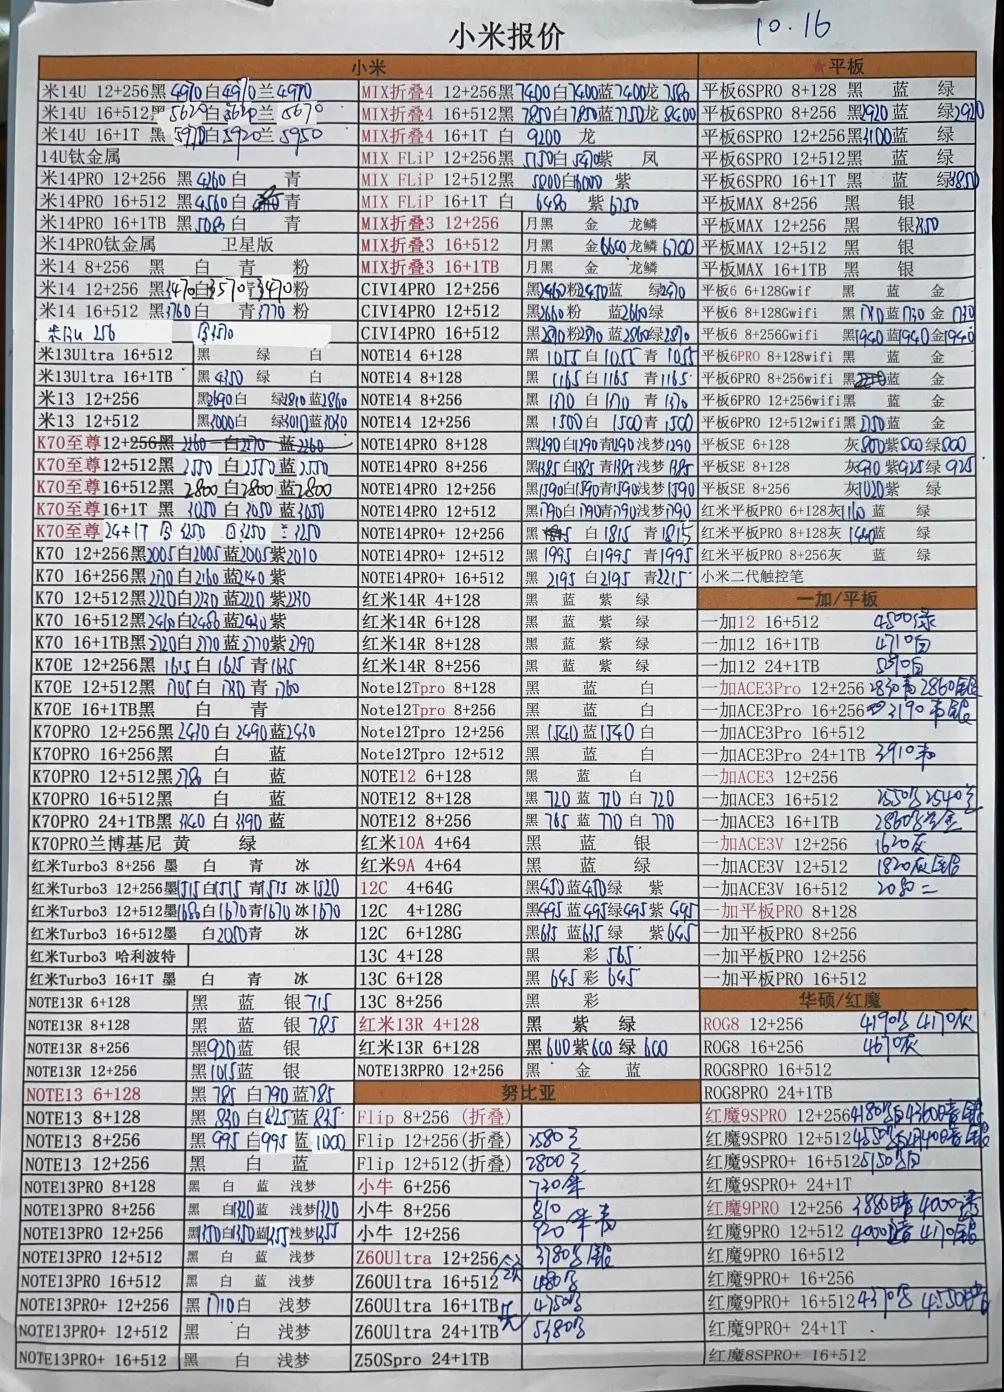 小米报价
10.16
小米
米14U 12+256黑4970白4970兰4970
米14U 16+512黑5620白5620兰5670
米14U 16+1T 黑5970白5920兰5950
14U钛金属
米14PRO 12+256 黑4260白 青
米14PRO 16+512 黑4560白 青
米14PRO 16+1TB黑5080白 青
米14PRO钛金属 卫星版
米14 8+256 黑 白 青 粉
米14 12+256黑3470白3570青3470粉
米14 16+512黑3760白 青3770粉
256
米13Ultra 16+512 黑 绿 白
米13Ultra 16+1TB 黑4350 绿 白
米13 12+256 黑2690白 绿2810蓝2860
米13 12+512 黑3000白 绿3010蓝3030
K70至尊12+256黑 2260 白2270 蓝2260
K70至尊12+512黑 2550 白2550 蓝2550
K70至尊16+512黑 2800 白2800 蓝2800
K70至尊16+1T 黑 3050 白3050 蓝3050
K70至尊24+1T 3250 白3250 3250
K70 12+256黑2005白2005蓝2005紫2010
K70 16+256黑2170白2160蓝2140紫
K70 12+512黑2220白2230蓝2220紫2230
K70 16+512黑2410白2480蓝2430紫
K70 16+1TB黑2720白2770蓝2770紫2790
K70E 12+256黑 1615白 1625 青1635
K70E 12+512黑 1705白 1730 青1760
K70E 16+1TB黑 白 青
K70PRO 12+256黑2430白 2490蓝2430
K70PRO 16+256黑 白 蓝
K70PRO 12+512黑2780 白 蓝
K70PRO 16+512黑 白 蓝
K70PRO 24+1TB黑3340白 3390蓝
K70PRO兰博基尼 黄 绿
红米Turbo3 8+256 墨 白 青 冰
红米Turbo3 12+256墨1515白1515 青1515 冰1520
红米Turbo3 12+512墨1680白1670青1670 冰1670
红米Turbo3 16+512墨 白2050青 冰
红米Turbo3 哈利波特
红米Turbo3 16+1T 墨 白 青 冰
NOTE13R 6+128 黑 蓝 银715
NOTE13R 8+128 黑 蓝 银785
NOTE13R 8+256 黑920蓝 银
NOTE13R 12+256 黑1015蓝 银
NOTE13 6+128 黑785 白790蓝785
NOTE13 8+128 黑830 白825蓝835
NOTE13 8+256 黑995 白995 蓝1000
NOTE13 12+256 黑 白 蓝
NOTE13PRO 8+128 黑 白 蓝 浅梦
NOTE13PRO 8+256 黑 白1320蓝 浅梦1320
NOTE13PRO 12+256 黑1350白1350蓝1355浅梦1355
NOTE13PRO 12+512 黑 白 蓝 浅梦
NOTE13PRO 16+512 黑 白 蓝 浅梦
NOTE13PRO+ 12+256 黑1710白 浅梦
NOTE13PRO+ 12+512 黑 白 浅梦
NOTE13PRO+ 16+512 黑 白 浅梦
MIX折叠4 12+256黑7400白7400蓝7400龙 7580
MIX折叠4 16+512黑7850白7850蓝7750龙 8400
MIX折叠4 16+1T 白 9200 龙
MIX FLiP 12+256黑 5150白 5470紫 凤
MIX FLiP 12+512黑 5800白6000 紫
MIX FLiP 16+1T 白 6480 紫6750
MIX折叠3 12+256 月黑 金 龙鳞
MIX折叠3 16+512 月黑 金6600龙鳞6700
MIX折叠3 16+1TB 月黑 金 龙鳞
CIVI4PRO 12+256 黑2460粉2450蓝 绿2470
CIVI4PRO 12+512 黑2660粉 蓝2660绿
CIVI4PRO 16+512 黑2870粉2870蓝2860绿2870
NOTE14 6+128 黑1055白1055青1055
NOTE14 8+128 黑1165白1165 青1165
NOTE14 8+256 黑1370白1370 青1370
NOTE14 12+256 黑1500白1500青1500
NOTE14PRO 8+128 黑1290白1290青1290浅梦1290
NOTE14PRO 8+256 黑1385白1385青1385浅梦1385
NOTE14PRO 12+256 黑1590白1590青1590浅梦1590
NOTE14PRO 12+512 黑1790白1790青1790浅梦1790
NOTE14PRO+ 12+256 黑 白1815 青1815
NOTE14PRO+ 12+512 黑1995 白1995 青1995
NOTE14PRO+ 16+512 黑2195 白2195 青2215
红米14R 4+128 黑 蓝 紫 绿
红米14R 6+128 黑 蓝 紫 绿
红米14R 8+128 黑 蓝 紫 绿
红米14R 8+256 黑 蓝 紫 绿
Note12Tpro 8+128 黑 蓝 白
Note12Tpro 8+256 黑 蓝 白
Note12Tpro 12+256 黑1540蓝1540白
Note12Tpro 12+512 黑 蓝 白
NOTE12 6+128 黑 蓝 白
NOTE12 8+128 黑720蓝720白720
NOTE12 8+256 黑765蓝770白770
红米10A 4+64 黑 蓝 银
红米9A 4+64 黑 蓝 绿
12C 4+64G 黑450蓝450绿 紫
12C 4+128G 黑495蓝495绿495紫495
12C 6+128G 黑635蓝635绿 紫645
13C 4+128 黑 彩565
13C 6+128 黑645彩645
13C 8+256 黑 彩
红米13R 4+128 黑 紫 绿
红米13R 6+128 黑600紫600绿600
NOTE13RPRO 12+256 黑 金 蓝
努比亚
Flip 8+256 (折叠)
Flip 12+256(折叠) 2580
Flip 12+512(折叠) 2800
小牛 6+256 720
小牛 8+256 810
小牛 12+256 920
Z60Ultra 12+256 3780
Z60Ultra 16+512
Z60Ultra 16+1TB 4750
Z60Ultra 24+1TB 5480
Z50Spro 24+1TB
★平板
平板6SPRO 8+128 黑 蓝 绿
平板6SPRO 8+256 黑2920蓝 绿2920
平板6SPRO 12+256黑3100蓝 绿
平板6SPRO 12+512黑 蓝 绿
平板6SPRO 16+1T 黑 蓝 绿3850
平板MAX 8+256 黑 银
平板MAX 12+256 黑 银3350
平板MAX 12+512 黑 银
平板MAX 16+1TB 黑 银
平板6 6+128Gwif 黑 蓝 金
平板6 8+128Gwif 黑1740蓝1730金1730
平板6 8+256Gwif 黑1940蓝1940金1940
平板6PRO 8+128wifi 黑 蓝 金
平板6PRO 8+256wifi 黑 蓝 金
平板6PRO 12+256wifi黑 蓝 金
平板6PRO 12+512wifi黑 蓝 金
平板SE 6+128 灰800紫800绿800
平板SE 8+128 灰930紫925绿925
平板SE 8+256 灰1020紫 绿
红米平板PRO 6+128灰 蓝 绿
红米平板PRO 8+128灰1440蓝 绿
红米平板PRO 8+256灰 蓝 绿
小米二代触控笔
一加/平板
一加12 16+512 4500绿
一加12 16+1TB 4710白
一加12 24+1TB 白
一加ACE3Pro 12+256 2830青2860银
一加ACE3Pro 16+256 3190
一加ACE3Pro 16+512
一加ACE3Pro 24+1TB 3910
一加ACE3 12+256
一加ACE3 16+512 2550 2540
一加ACE3 16+1TB 2860
一加ACE3V 12+256 1620灰
一加ACE3V 12+512 1820灰
一加ACE3V 16+512 2080
一加平板PRO 8+128
一加平板PRO 8+256
一加平板PRO 12+256
一加平板PRO 16+512
华硕/红魔
ROG8 12+256 4190 4170灰
ROG8 16+256 4670灰
ROG8PRO 16+512
ROG8PRO 24+1TB
红魔9SPRO 12+256 4180 4360
红魔9SPRO 12+512 4550
红魔9SPRO+ 16+512 5150
红魔9SPRO+ 24+1T
红魔9PRO 12+256 3880暗 4000
红魔9PRO 12+512 4000 4170
红魔9PRO 16+512
红魔9PRO+ 16+256
红魔9PRO+ 16+512 4370 4550
红魔9PRO+ 24+1T
红魔8SPRO+ 16+512